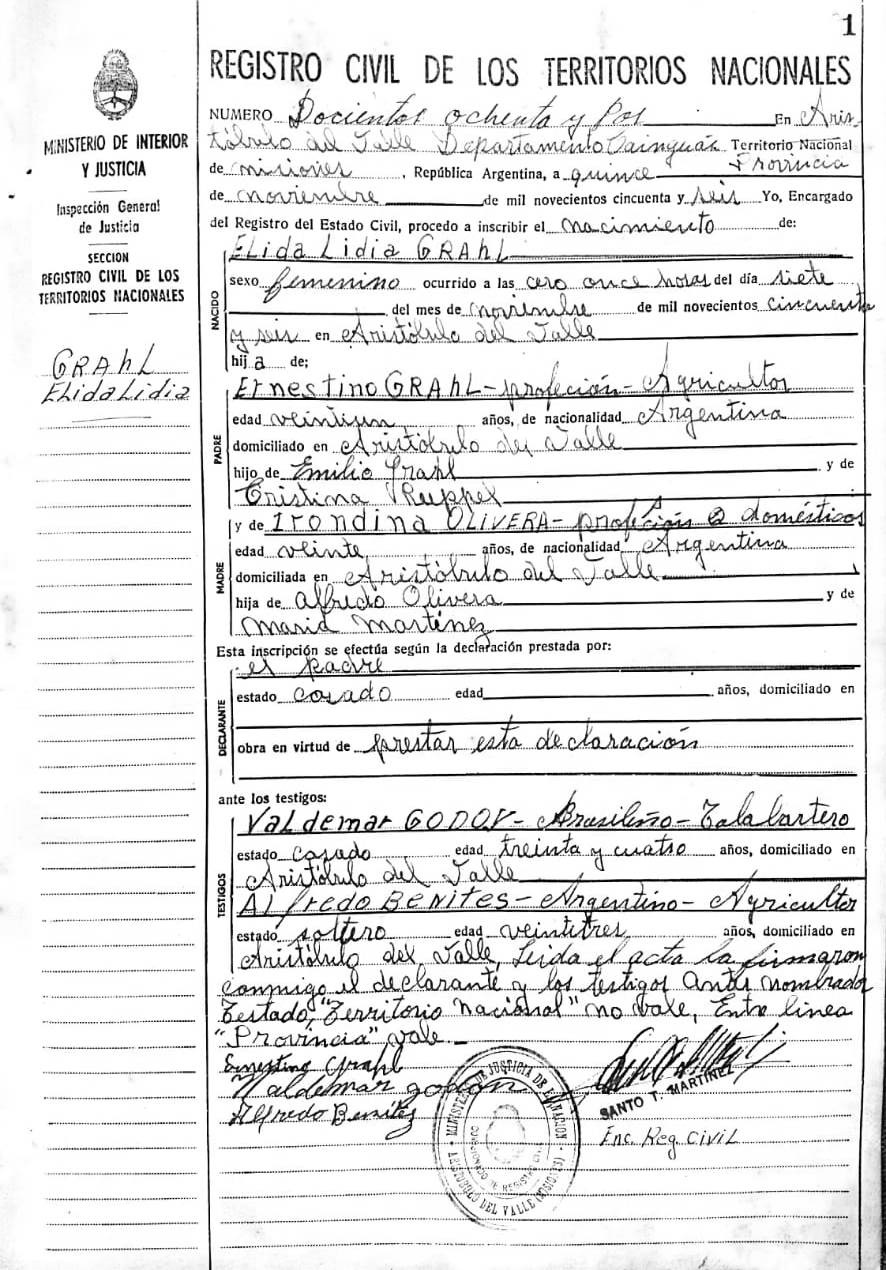 1
REGISTRO CIVIL DE LOS TERRITORIOS NACIONALES
MINISTERIO DE INTERIOR
Y JUSTICIA
Inspección General
de Justicia
SECCION
REGISTRO CIVIL DE LOS
TERRITORIOS NACIONALES
GRAhL
ELidaLidia
NUMERO Docientos ochenta y Dos En Aris-
tóbulo del Valle Departamento Cainguás Territorio Nacional
Provincia
de misiones, República Argentina, a quince
de noviembre de mil novecientos cincuenta y seis Yo, Encargado
del Registro del Estado Civil, procedo a inscribir el nacimiento de:
NACIDO
ELida Lidia GRAhL
sexo femenino ocurrido a las cero once horas del día siete
del mes de noviembre de mil novecientos cincuenta
y seis en Aristóbulo del Valle
hija de:
PADRE
ErnestinoGRAhL-profeción-Agricultor
edad veintiun años, de nacionalidad Argentina
domiciliado en Aristóbulo del Valle
hijo de Emilio Grahl y de
Cristina Ruppel
MADRE
y de Irondina OLIVERA- profeción Q domésticos
edad veinte años, de nacionalidad Argentina
domiciliada en Aristóbulo del Valle
hija de Alfredo Olivera y de
Maria Martinez
Esta inscripción se efectúa según la declaración prestada por:
DECLARANTE
el padre
estado casado edad años, domiciliado en
obra en virtud de prestar esta declaración
ante los testigos:
TESTIGOS
VaLdemar GODOY- Brasileño- Talabartero
estado casado edad treinta y cuatro años, domiciliado en
Aristóbulo del Valle
ALfredo BENITES- Argentino- Agricultor
estado soltero edad veintitres años, domiciliado en
Aristóbulo del Valle, Leida el acta la firmaron
conmigo el declarante y los testigos antes nombrados
Testado, "Territorio Nacional" no vale, Entre linea
"Provincia" vale.-
Ernestino Grahl
Valdemar godoy
Alfredo Benites
MINISTERIO DE JUSTICIA DE LA NACION
ARISTOBULO DEL VALLE (MISIONES)
SANTO T. MARTINEZ
Enc. Reg. CiviL